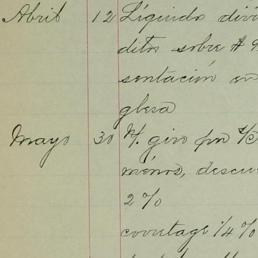 Abril 12 Líquido divi
ditos sobre $ 9
sentación en
glesa
Mayo 30 N/. giro por
menos, descue
2 %
corretage 1/4 %